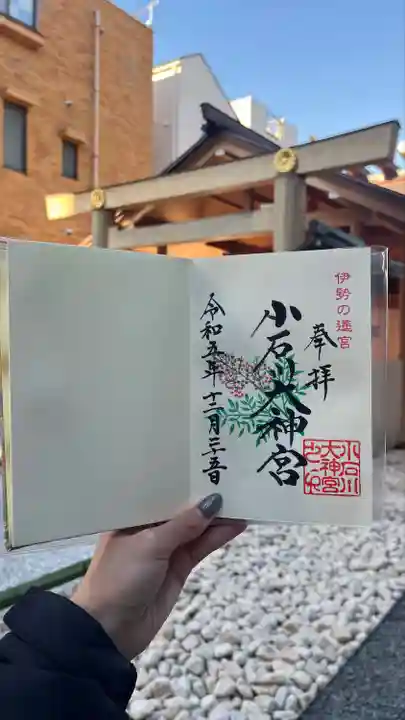 伊勢の遥宮
奉拝
小石川大神宮
令和五年十二月二十五日
小石川
大神宮